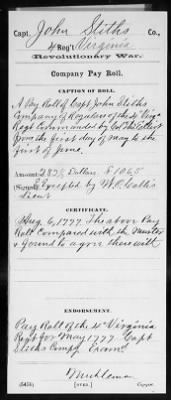 Capt. John Stiths Co.,
4 Reg't Virginia
Revolutionary War.
Company Pay Roll.
CAPTION OF ROLL.
A Pay Roll of Capt John Stiths
Company of Regulars of the 4 Virg
Regt Commanded by Col
from the first day of May to the
first of June.
Amount 282⅓ Dollars,
(Signed) Excepted by
Lieut
CERTIFICATE.
Aug 6, 1777. The above Pay
Roll Compared with the Muster
& found to agree therewith
ENDORSEMENT.
Pay Roll of the 4 Virginia
Regt for May 1777. Capt
Stiths Compy. Examd
(545b) [OVER.] Copyist.